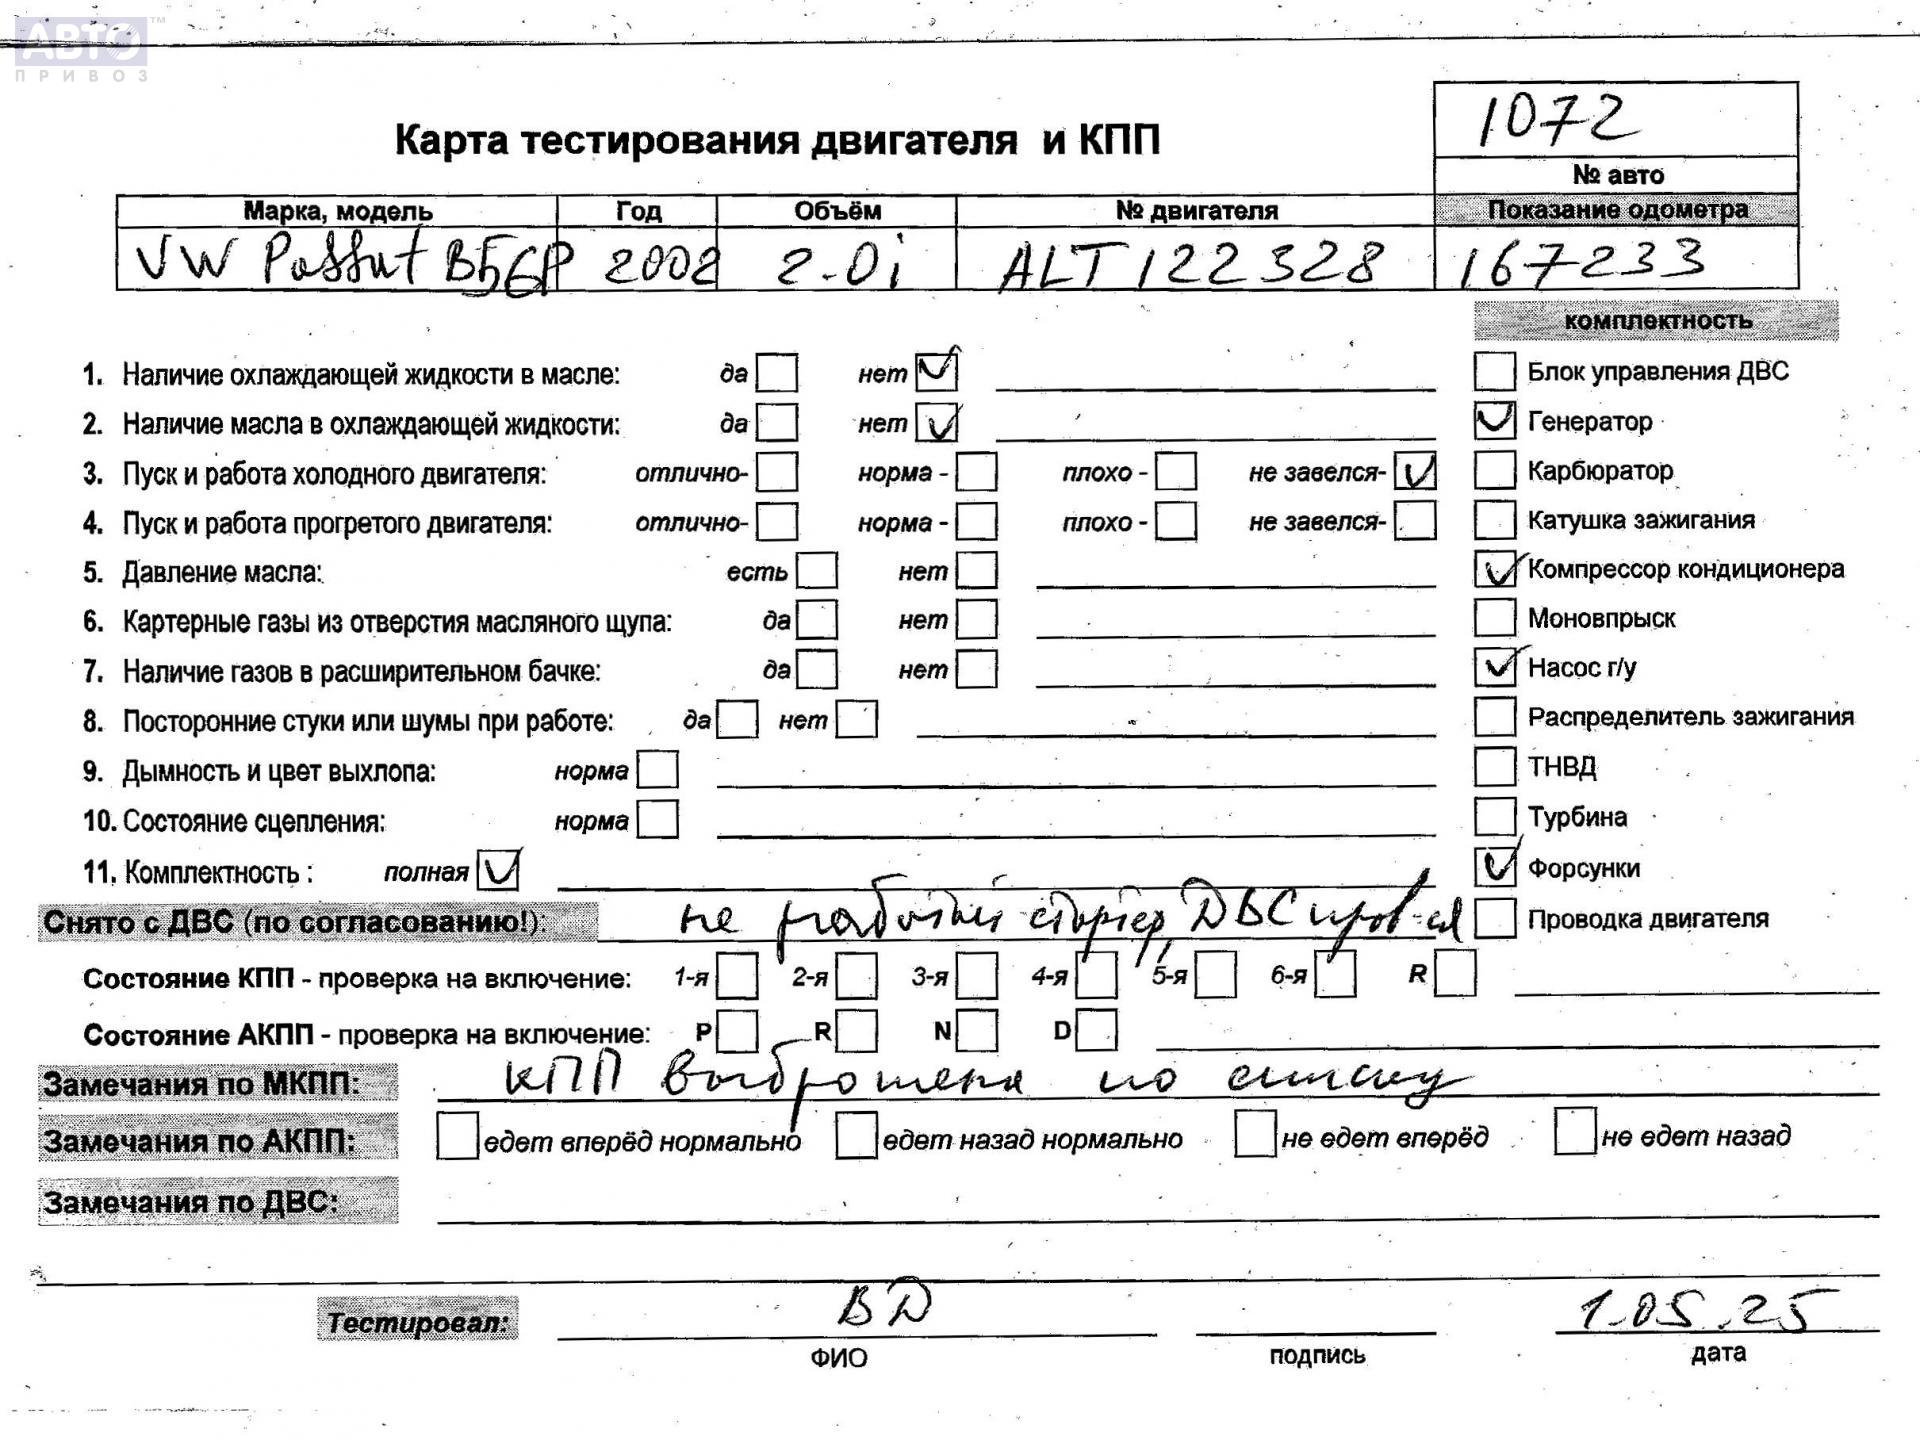 АВТО™
ПРИВОЗ
1072
Карта тестирования двигателя и КПП
№ авто
Марка, модель Год Объём № двигателя Показание одометра
VW Passat B5GP 2002 2.0i ALT 122328 167233
комплектность
1. Наличие охлаждающей жидкости в масле: да нет Блок управления ДВС
2. Наличие масла в охлаждающей жидкости: да нет Генератор
3. Пуск и работа холодного двигателя: отлично- норма - плохо - не завелся- Карбюратор
4. Пуск и работа прогретого двигателя: отлично- норма - плохо - не завелся- Катушка зажигания
5. Давление масла: есть нет Компрессор кондиционера
6. Картерные газы из отверстия масляного щупа: да нет Моновпрыск
7. Наличие газов в расширительном бачке: да нет Насос г/у
8. Посторонние стуки или шумы при работе: да нет Распределитель зажигания
9. Дымность и цвет выхлопа: норма ТНВД
10. Состояние сцепления: норма Турбина
11. Комплектность : полная Форсунки
Снято с ДВС (по согласованию!): не рабочий стартер, ДВС пров-ся Проводка двигателя
Состояние КПП - проверка на включение: 1-я 2-я 3-я 4-я 5-я 6-я R
Состояние АКПП - проверка на включение: P R N D
Замечания по МКПП: КПП выброшена по списку
Замечания по АКПП: едет вперёд нормально едет назад нормально не едет вперёд не едет назад
Замечания по ДВС:
Тестировал: ВД 1.05.25
ФИО подпись дата